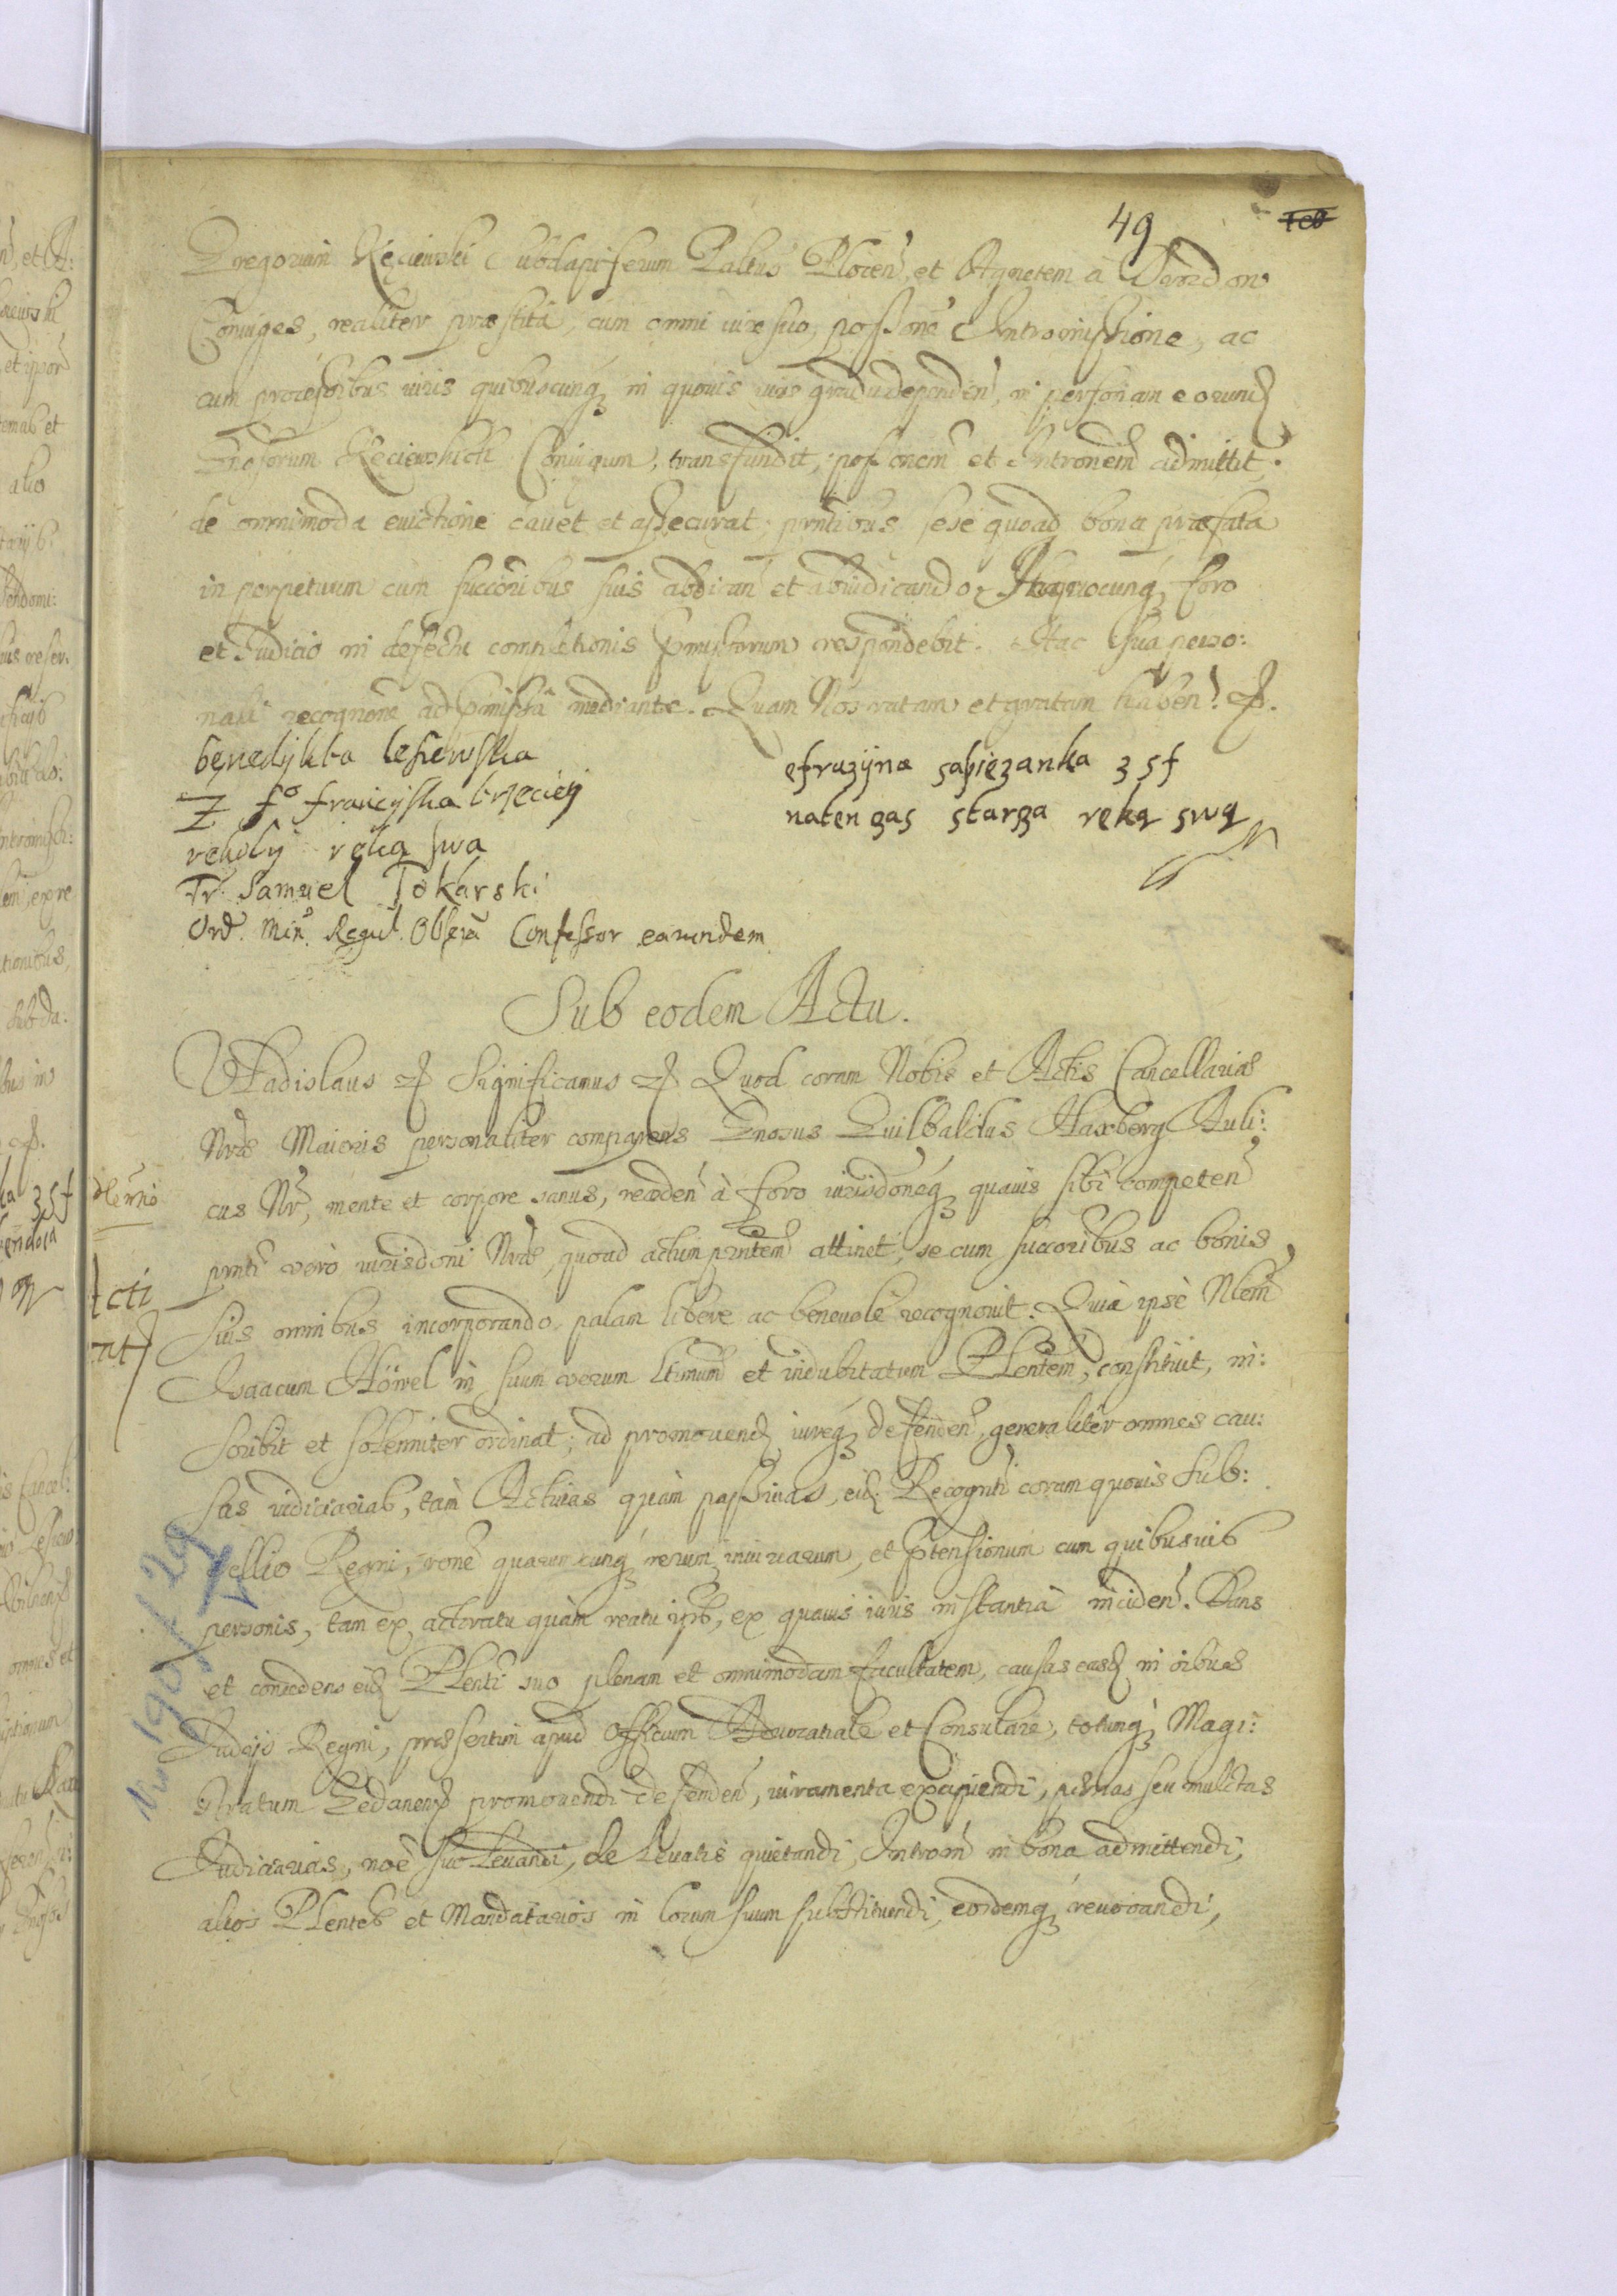 49
Gregorium Kęciewski Subdapiferum Paltus Plocen, et Agnetem à
Coniuges, realiter præstitâ, cum omni iure suo, possone Intromissione, ac
cum processibus iuris quibuscunq in quovis iuris gradu dependen, in personam eorund
Gnosorum Kęciewskich Coniugum, transfundit, possonem et Intronem admittit.
de omnimoda evictione cavet et assecurat; prntibus sese quoad bona præfata
in perpetuum cum succoribus suis abdican et abiudicando. In quocunq foro
et Judicio in defectu completionis pmissorum respondebit. Hac sua perso:
nali recognone ad pmissa mediante. Quam Nos ratam et gratam haben.
benedykta lesiewska
Z fo franciszka trzeciey
reholy ręka swa
Fr. Samuel Tokarski
Ord. Min. Regul. Obserā Confessor earundem
efruzyna sapiezanka z s f
naten zas starza ręką swą
Sub eodem Actu.
Vladislaus Significamus Quod coram Nobis et Actis Cancellariæ
Nræ Maioris personaliter comparens Gnosus Guilbaldus Haxberg Auli:
cus Nr, mente et corpore sanus, receden à foro iurisdoneq quavis sibi competen
prnti verò iurisdoni Nræ, quoad actum prntem attinet, se cum succoribus ac bonis
suis omnibus incorporando, palam libere ac benevole recognovit. Quia ipse Nlem
Isaacum Höwel in suum verum ltimum et indubitatum Plentem, constituit, in:
scribit et solenniter ordinat; ad promovend iureq defenden, generaliter omnes cau:
sas iudiciarias, tam Activas quàm passivas, eid Recognti coram quovis Sub:
sellio Regni, rone quaruncunq rerum, iniuriarum, et ptensionum cum quibusvis
personis, tam ex actoratu quàm reatu ipsi, ex quavis iuris instantiâ inciden. Dans
et concedens eid Plenti suo plenam et omnimodam facultatem, causas easd in oibus
Judcijs Regni, præsertim apud Officium Advocatiale et Consulare, totumq Magi:
stratum Gedanens promovendi defenden, iuramenta excipiendi, pænas seu mulctas
Judiciarias, noe suo levandi, de levatis quietandi, Introm in bona admittendi,
alios Plentes et Mandatarios in locum suum substituendi, eosdemq revocandi,